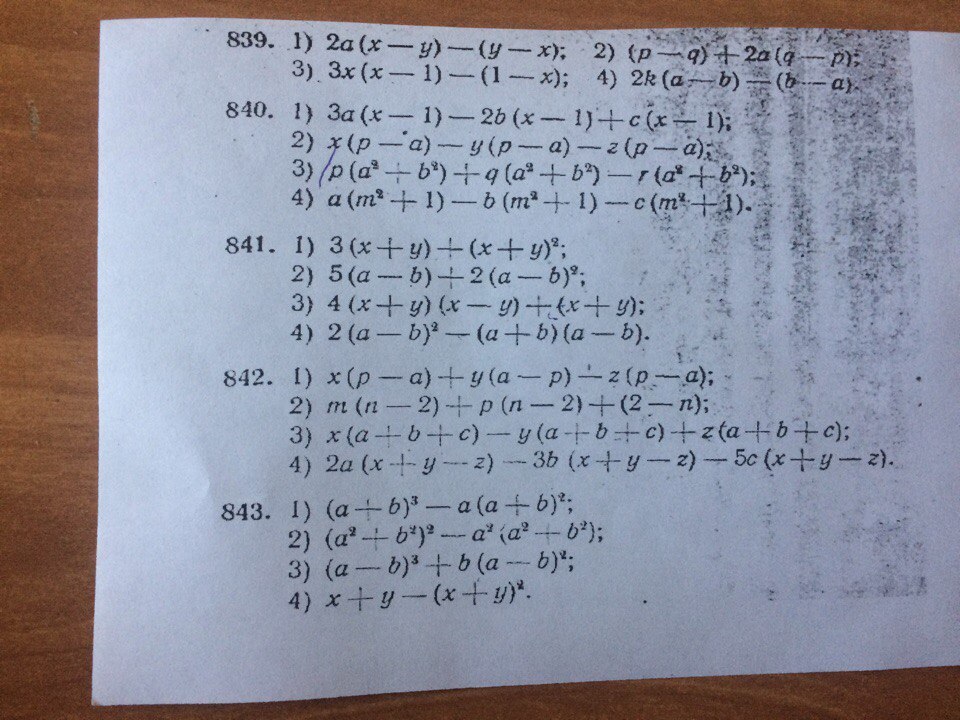 839. 1) 2a (x — y) — (y — x); 2) (p — q) + 2a (q — p);
3) 3x (x — 1) — (1 — x); 4) 2k (a — b) — (b — a).
840. 1) 3a (x — 1) — 2b (x — 1) + c (x — 1);
2) x (p — a) — y (p — a) — z (p — a);
3) p (a² + b²) + q (a² + b²) — r (a² + b²);
4) a (m² + 1) — b (m² + 1) — c (m² + 1).
841. 1) 3 (x + y) + (x + y)²;
2) 5 (a — b) + 2 (a — b)²;
3) 4 (x + y) (x — y) + (x + y);
4) 2 (a — b)² — (a + b) (a — b).
842. 1) x (p — a) + y (a — p) + z (p — a);
2) m (n — 2) + p (n — 2) + (2 — n);
3) x (a + b + c) — y (a + b + c) + z (a + b + c);
4) 2a (x + y — z) — 3b (x + y — z) — 5c (x + y — z).
843. 1) (a + b)³ — a (a + b)²;
2) (a² + b²)² — a² (a² + b²);
3) (a — b)³ + b (a — b)²;
4) x + y — (x + y)².